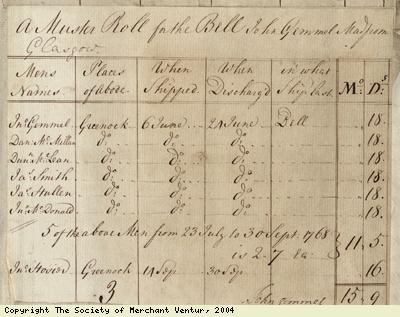 A Muster Roll for the Bell John Gemmel Mas.r from
Glasgow
Mens Places When When in what M.o D.s
Names of abode Shipped Discharg'd Ship last
Jn.o Gemmel Greenock 6 June 24 June Bell 18
Dan.l Mc.Millan d.o d.o d.o 18.
Dun.n Mc.Lean d.o d.o d.o 18.
Ja.s Smith d.o d.o d.o 18.
Ja.s d.o d.o d.o 18.
Jn.o Mc.Donald d.o d.o d.o 18.
5 of the above Men from 23 July to 30 Sept. 1768
is 2..7 ea. 11. 5.
Jn.o Greenock 14 Sep 30 Sep. 16.
3 John Gemmel 15 9
Copyright The Society of Merchant Ventur, 2004